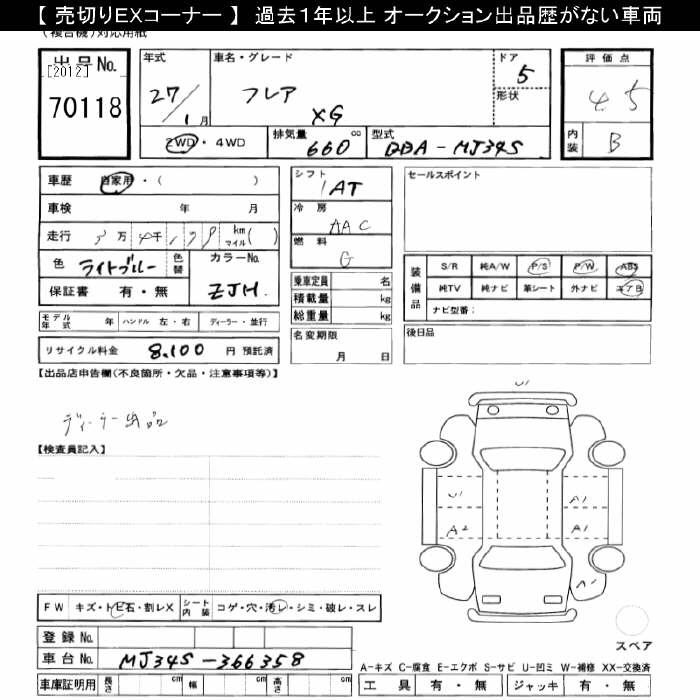 【 売切りEXコーナー 】 過去1年以上 オークション出品歴がない車両
(複合機)対応用紙
出品No.
[2012]
70118
年式
27/1月
車名・グレード
フレア
XG
ドア
5
形状
評価点
4 5
内装 B
2WD・4WD
排気量 cc
660
型式
DBA-MJ34S
車歴 自家用・( )
車検 年 月
走行 万 千 km マイル( )
色 ライトブルー 色替
カラーNo.
ZJH
保証書 有・無
シフト
1AT
冷房
AAC
燃料
G
乗車定員 名
積載量 kg
総重量 kg
セールスポイント
装備品
S/R 純A/W P/S P/W ABS
純TV 純ナビ 革シート 外ナビ エアB
ナビ型番:
モデル年式 年 ハンドル 左・右 ディーラー・並行
リサイクル料金 8,100 円 預託済
名変期限
月 日
後日品
【出品店申告欄(不良箇所・欠品・注意事項等)】
ディーラー出品
【検査員記入】
U1
U1 A1
A2 A1
A1
スペア
FW キズ・トビ石・割レX シート内装 コゲ・穴・汚レ・シミ・破レ・スレ
登録No.
車台No. MJ34S-366358
A-キズ C-腐食 E-エクボ S-サビ U-凹ミ W-補修 XX-交換済
車庫証明用 長さ cm 幅 cm 高さ cm
工具 有・無 ジャッキ 有・無